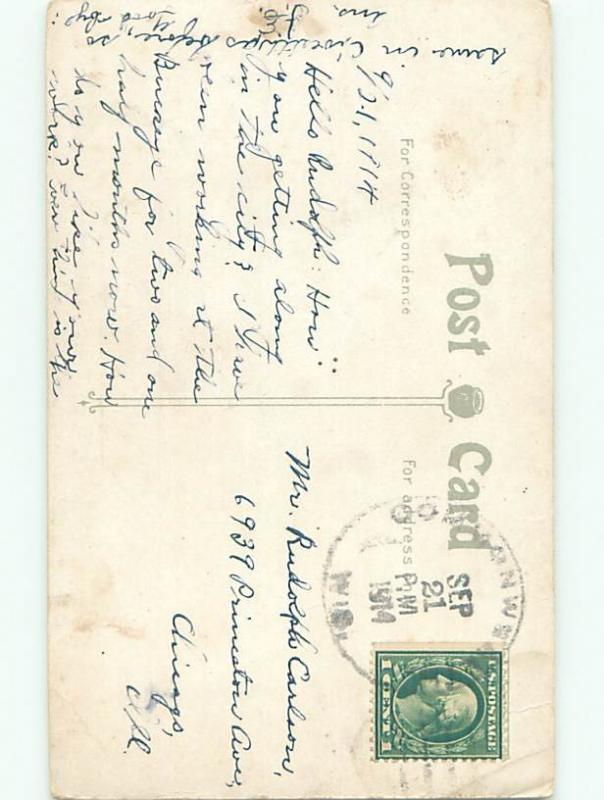 Post Card
For Correspondence
For address
9/21, 1914
Hello Rudolph: How
you getting along
in the city? I have
been working at the
Buckeye for two and one
half months now. How
do you like your
work?
is the
same in
as before, so
Good bye.
SEP
21
P.M
1914
WIS
U.S. POSTAGE
1 CENT 1
Mr. Rudolph Carlson,
6939 Princeton Ave.,
Chicago,
Ill.